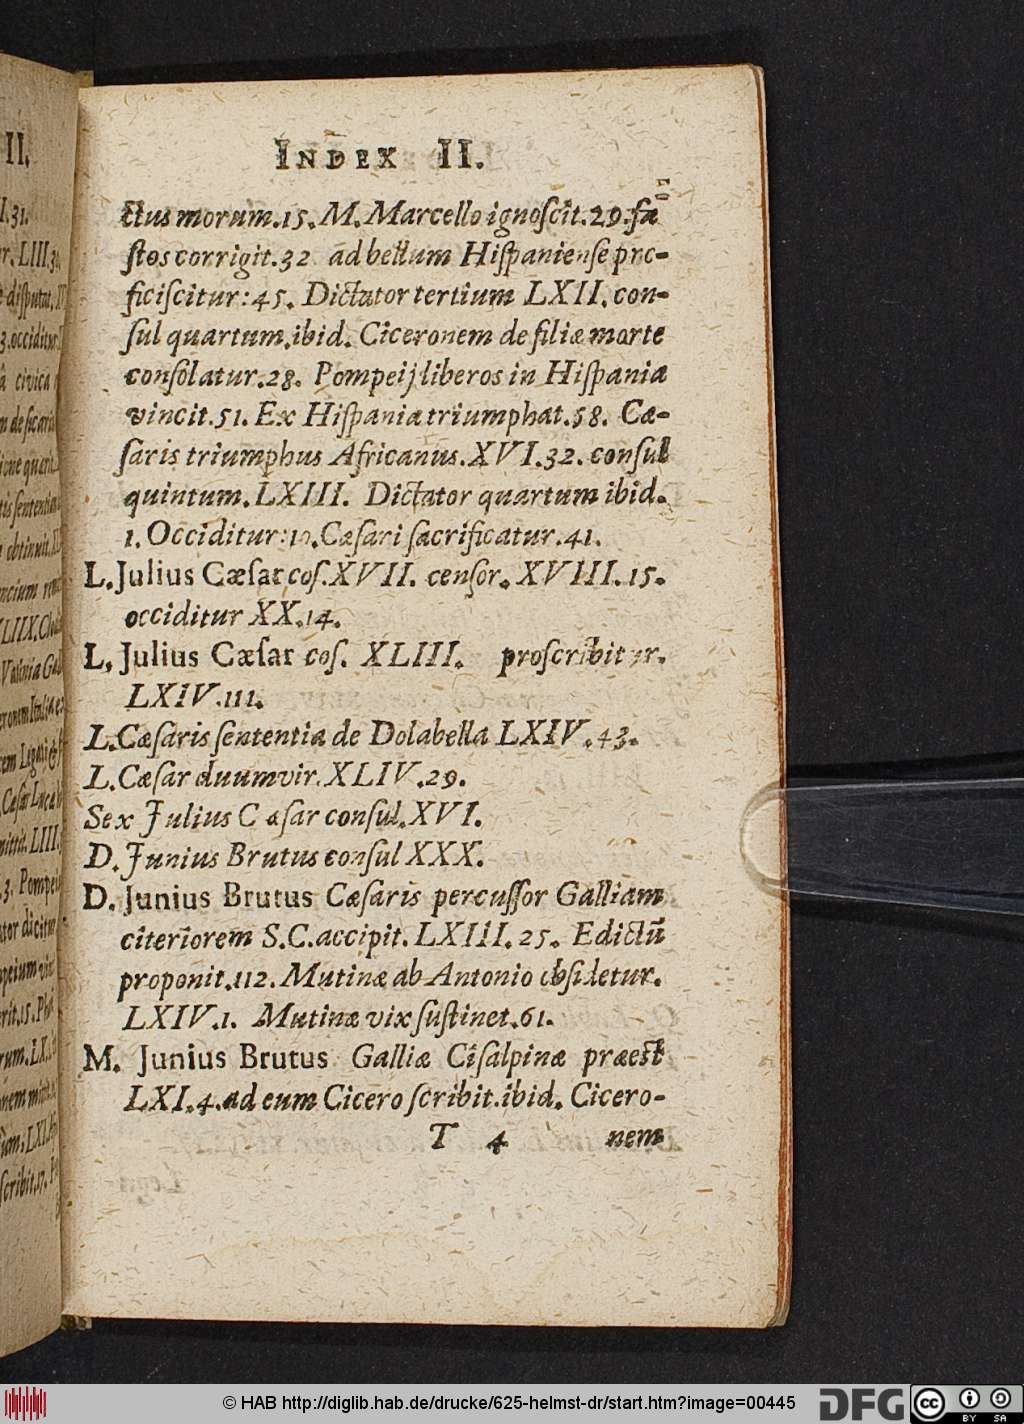 INDEX II.
ctus morum.15. M. Marcello ignoſcit.29.fa
ſtos corrigit.32 ad bellum Hiſpanienſe pro-
ficiſcitur:45. Dictator tertium LXII. con-
ſul quartum.ibid. Ciceronem de filiæ morte
conſolatur.28. Pompeij liberos in Hiſpania
vincit.51. Ex Hiſpania triumphat.58. Cæ-
ſaris triumphus Africanus.XVI.32. conſul
quintum. LXIII. Dictator quartum ibid.
1. Occiditur:10.Cæſari ſacrificatur.41.
L.Julius Cæſar coſ.XVII. cenſor. XVIII.15.
occiditur XX.14.
L. Julius Cæſar coſ. XLIII. proſcribitur.
LXIV.111.
L.Cæſaris ſententia de Dolabella LXIV.43.
L.Cæſar duumvir.XLIV.29.
Sex Julius Cæſar conſul.XVI.
D.Junius Brutus conſul XXX.
D. Junius Brutus Cæſaris percuſſor Galliam
citeriorem S.C.accipit. LXIII.25. Edictū
proponit.112. Mutinæ ab Antonio obſidetur.
LXIV.1. Mutinæ vix ſuſtinet.61.
M. Junius Brutus Galliæ Ciſalpinæ præeſt
LXI.4.ad eum Cicero ſcribit.ibid. Cicero-
T 4 nem
II.
I.31.
© HAB http://diglib.hab.de/drucke/625-helmst-dr/start.htm?image=00445
DFG
cc
BY SA